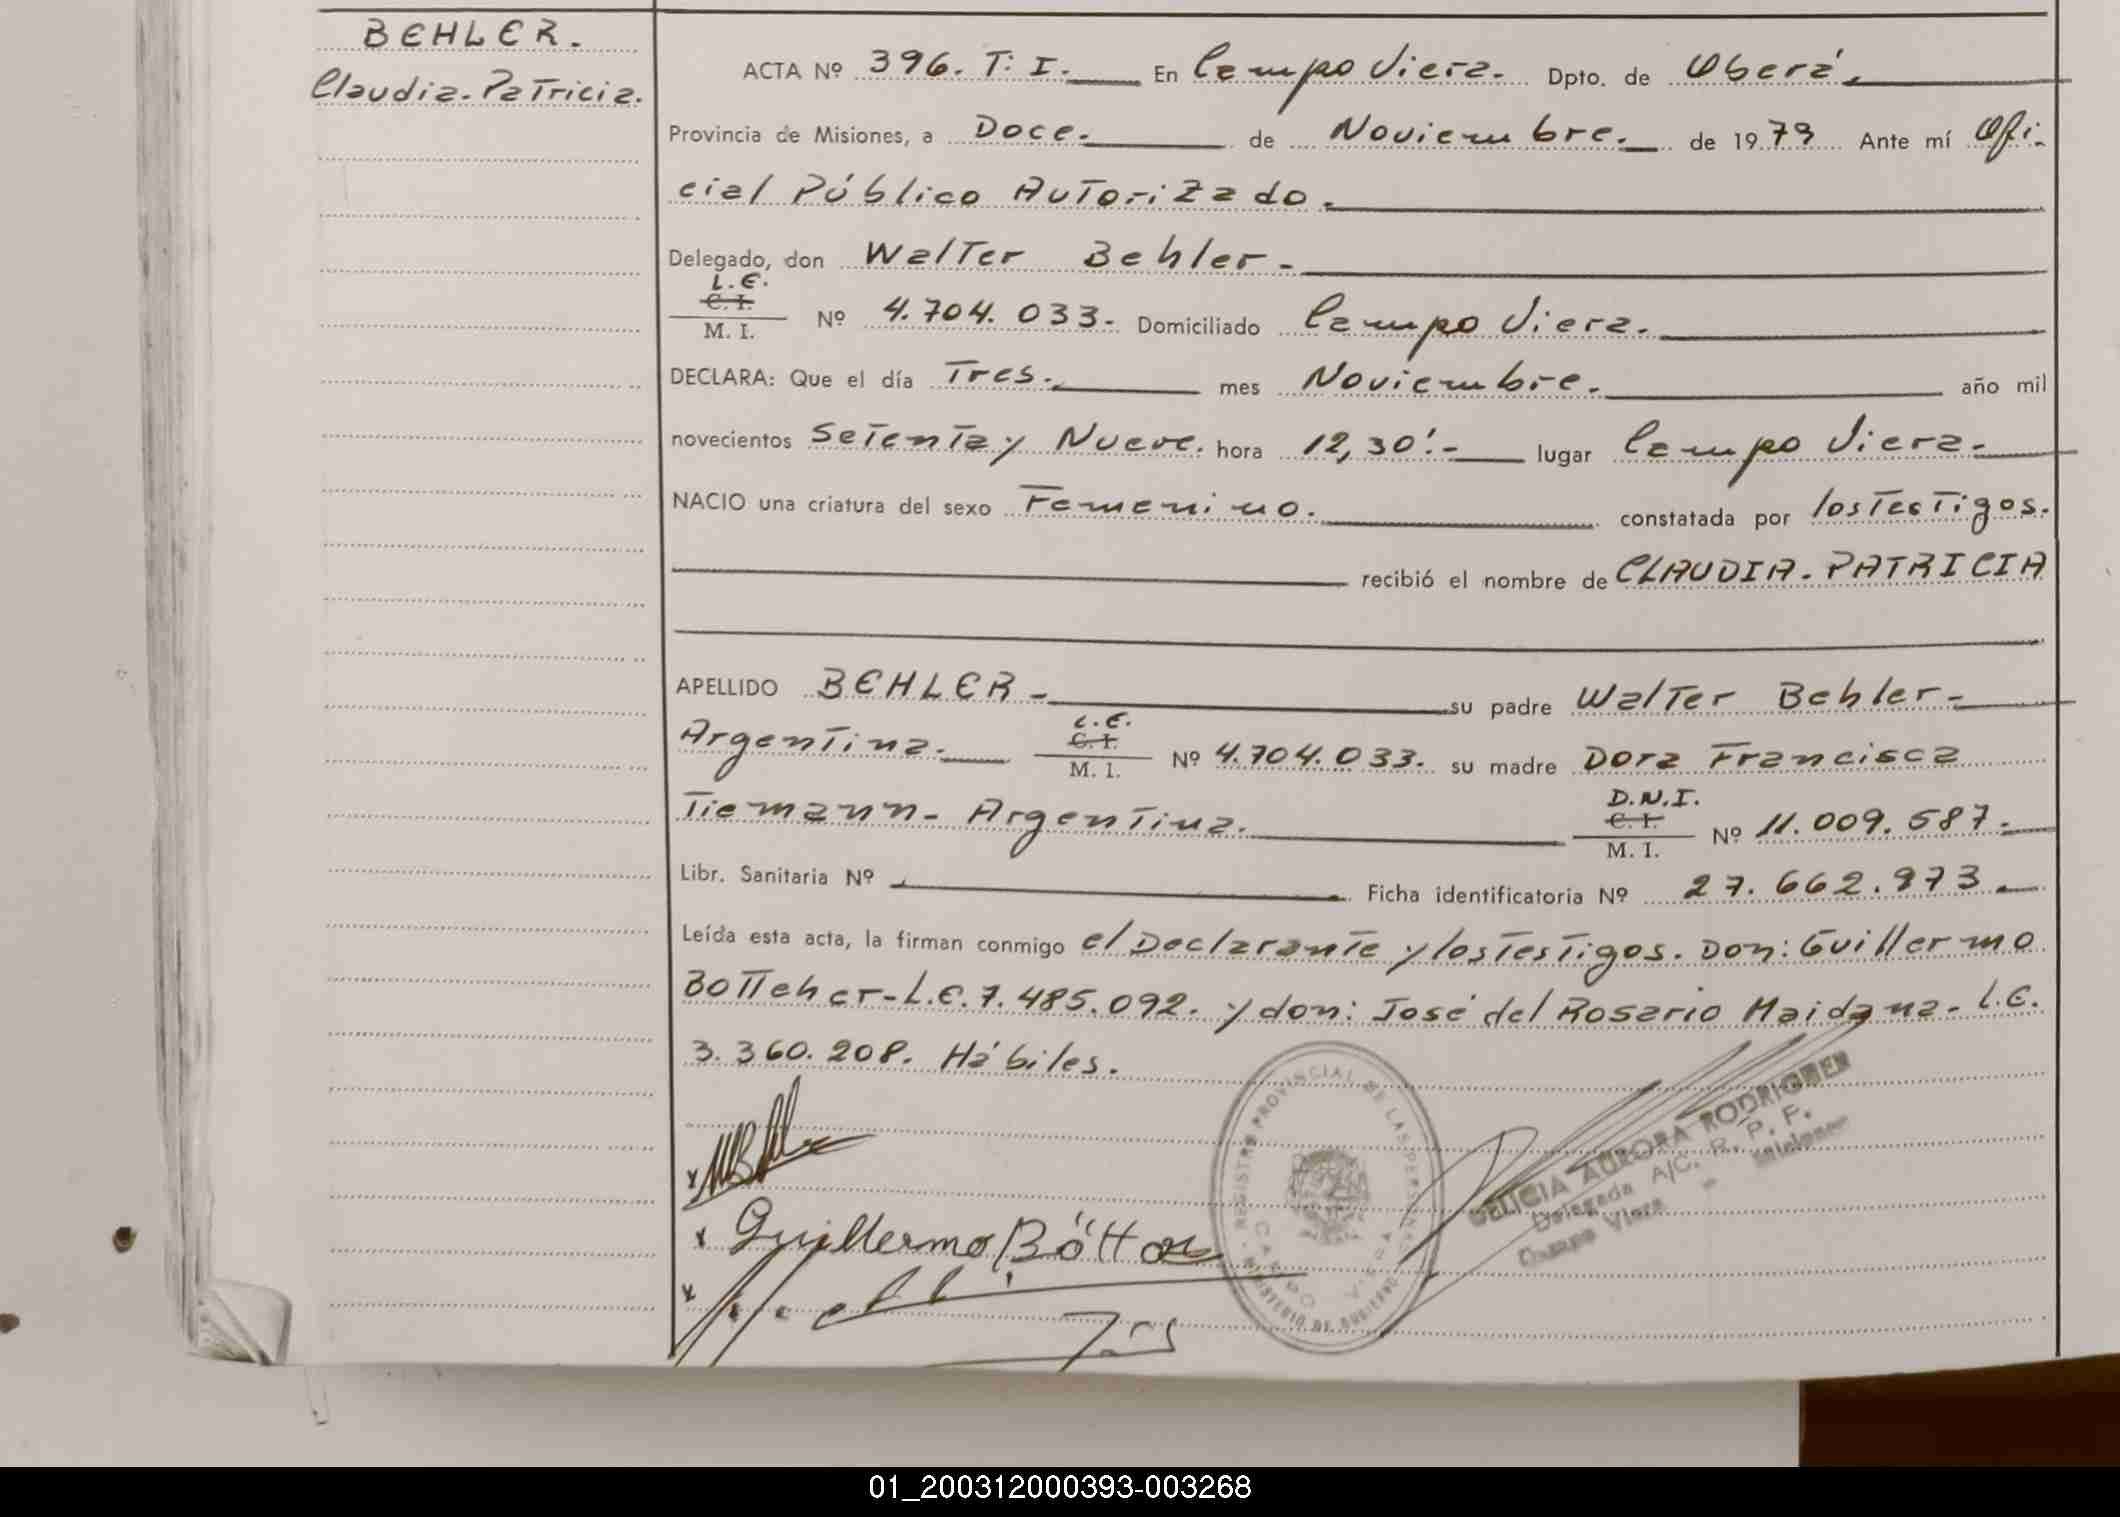 BEHLER.
Claudia. Patricia.
ACTA Nº 396. T: I. En Campo Viera. Dpto. de Oberá.
Provincia de Misiones, a Doce. de Noviembre. de 1979 Ante mí Ofi-
cial Público Autorizado.
Delegado, don Walter Behler-
L.E.
C. I.
M. I.
Nº 4.704.033.- Domiciliado Campo Viera.
DECLARA: Que el día Tres. mes Noviembre. año mil
novecientos Setenta y Nueve. hora 12,30'.- lugar Campo Viera.-
NACIO una criatura del sexo Femenino. constatada por los Testigos.
recibió el nombre de CLAUDIA. PATRICIA
APELLIDO BEHLER- su padre Walter Behler-
L.E.
Argentina. C. I. Nº 4.704.033. su madre Dora Francisca
M. I.
Tiemann- Argentina. D.N.I.
C. I.
M. I.
Nº 11.009.587.-
Libr. Sanitaria Nº Ficha identificatoria Nº 27.662.973.
Leída esta acta, la firman conmigo el Declarante y los Testigos. Don: Guillermo
Bottcher- L.E. 7.485.092. y don: José del Rosario Maidana- L.E.
3.360.208. Hábiles.
REGISTRO PROVINCIAL DE LAS PERSONAS
CAMPO VIERA
MINISTERIO DE GOBIERNO
AURORA RODRIGUEZ
Delegada A/C. R. P. F.
Campo Viera - Misiones
Guillermo
01_200312000393-003268